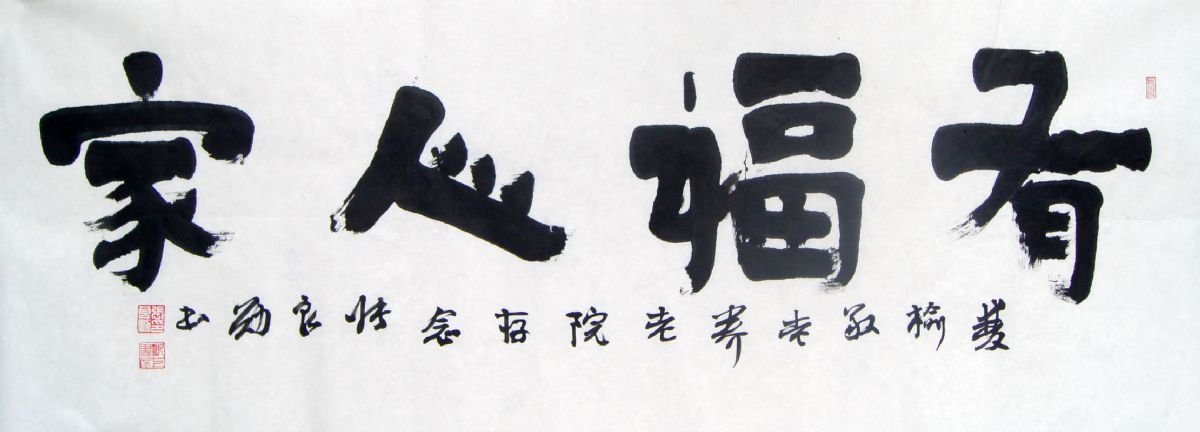 有福人家
雙榆敬老养老院存念良勋书